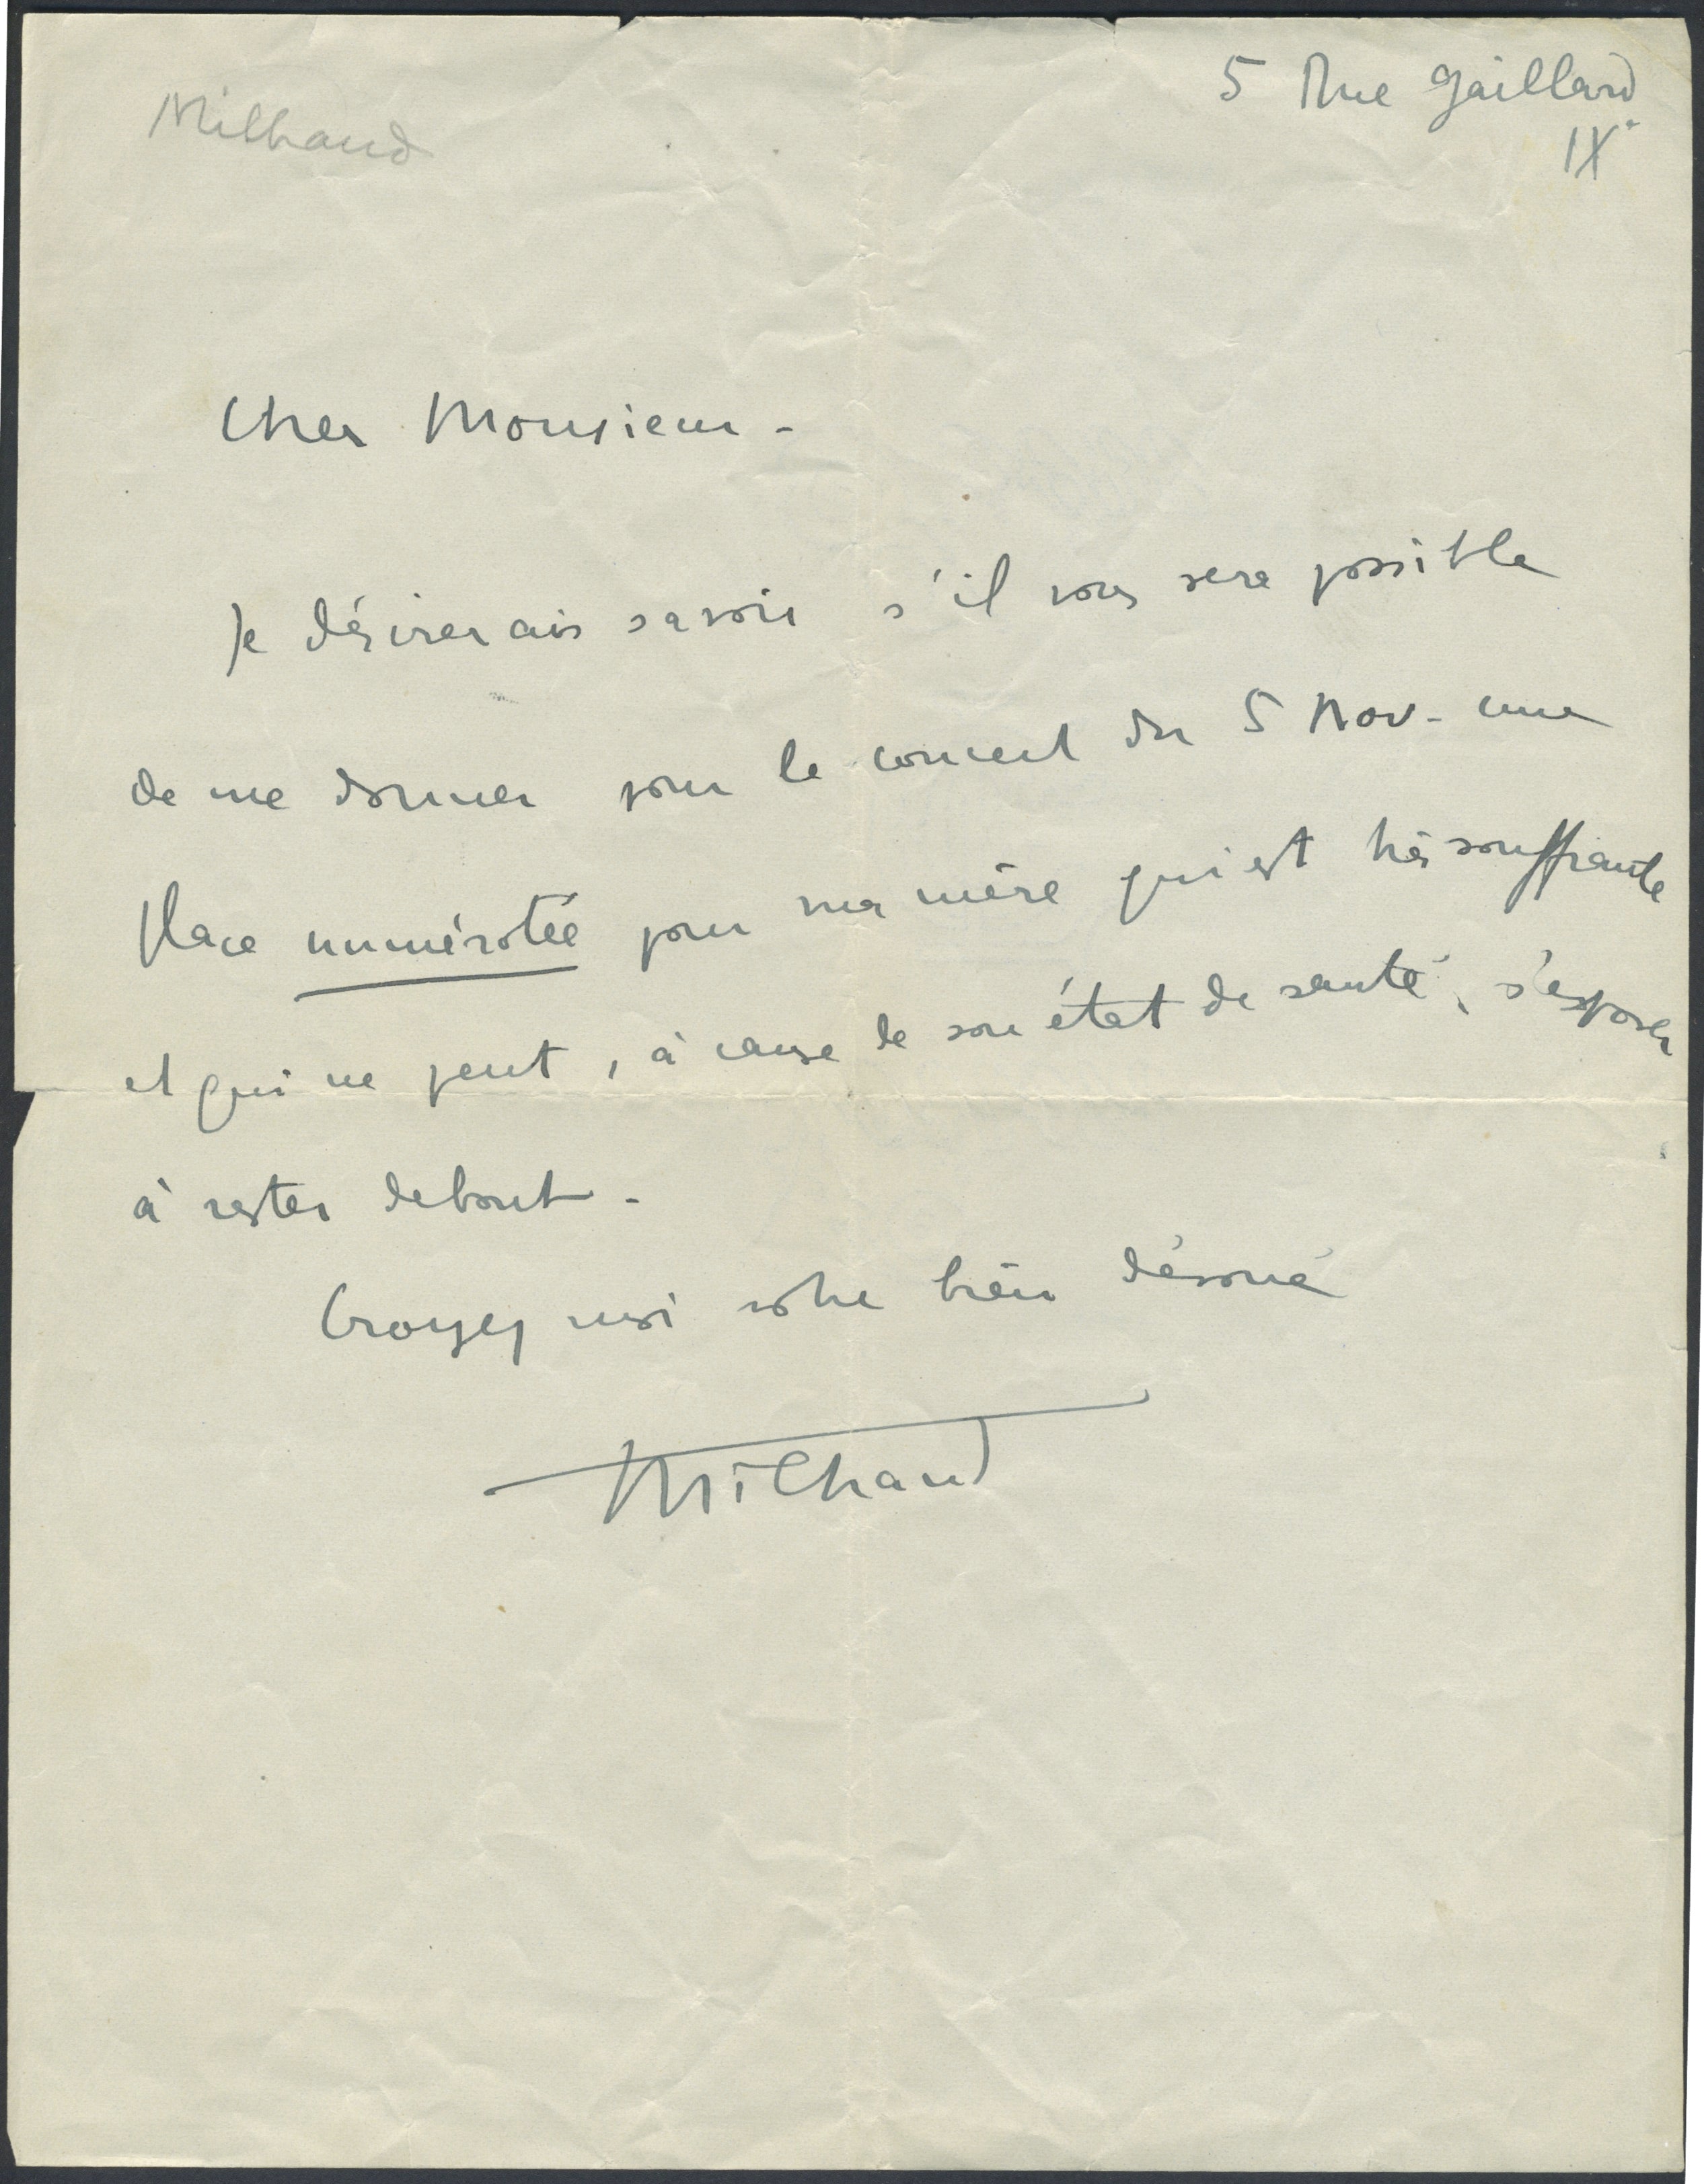 Milhaud
5 Rue Gaillard
IXe
Cher Monsieur -
Je désirerais savoir s'il vous sera possible
de me donner pour le concert du 5 Nov. une
place numérotée pour ma mère qui est très souffrante
et qui ne peut, à cause de son état de santé, s'exposer
à rester debout -
Croyez moi votre bien dévoué
Milhaud